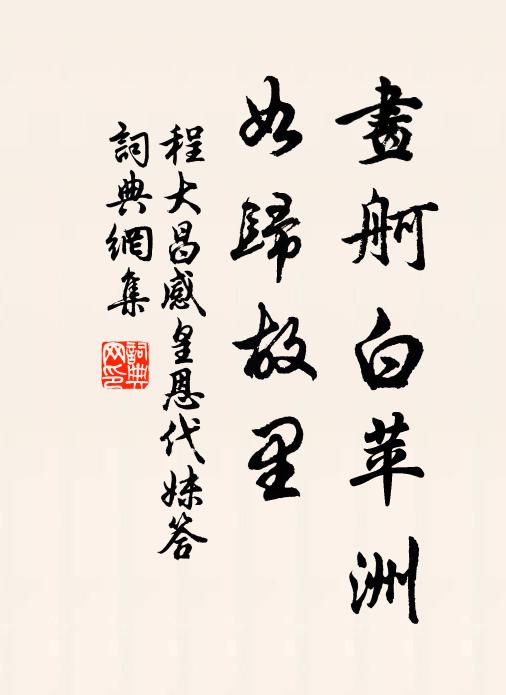 畫舸白苹洲
如歸故里
程大昌感皇恩代妹答
詞典網集
詞典网印